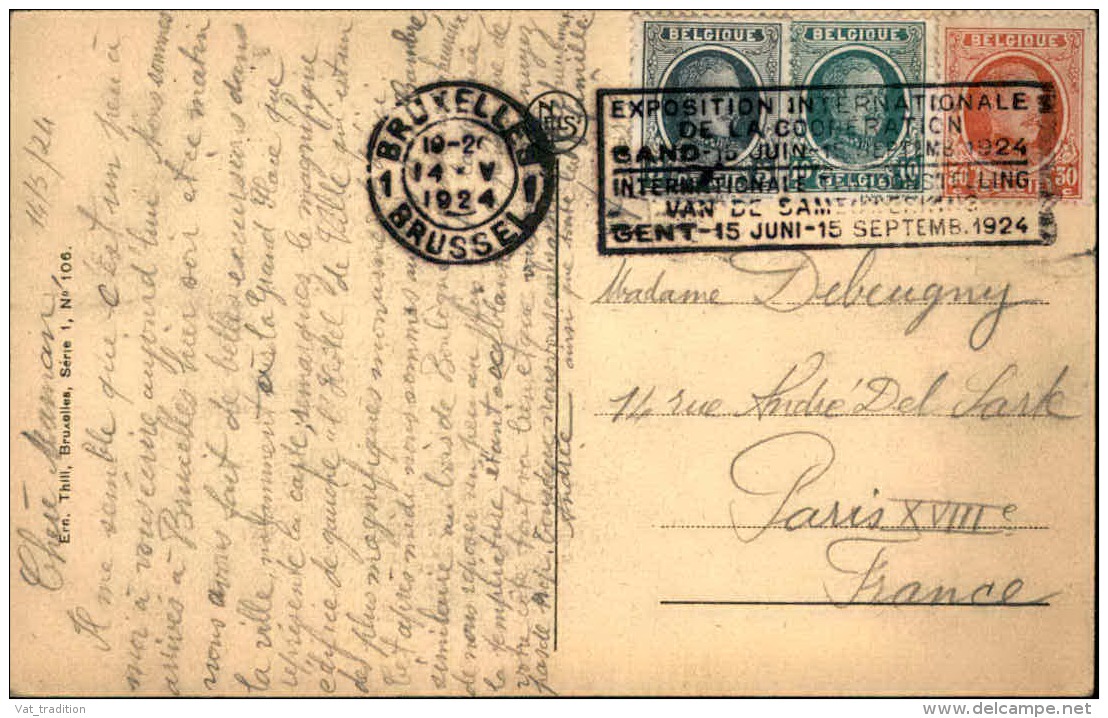 14/5/24
Chère Maman
Il me semble que c'est un peu à
moi à vous écrire aujourd'hui. Nous sommes
arrivés à Bruxelles hier soir et ce matin
nous avons fait de belles excursions dans
la ville, notamment à la Grand Place que
représente la carte; remarquez le magnifique
édifice de gauche, l'Hôtel de Ville, qui est un
des plus magnifiques monuments
Cet après midi nous sommes
similaire au bois de Boulogne
de nous reposer un peu au frais
la température étant accablante
votre côté tout va bien et que vous
pas de Nous vous embrassons
ainsi que toute la famille
Andrée
Ern. Thill, Bruxelles, Série 1, N° 106.
NELS
BRUXELLES 1
19-20
14 V
1924
1 BRUSSEL
BELGIQUE
BELGIQUE
BELGIQUE
30 c 30 c
EXPOSITION INTERNATIONALE
DE LA COOPERATION
GAND-15 JUIN-15 SEPTEMB.1924
INTERNATIONALE TENTOONSTELLING
VAN DE SAMENWERKING
GENT-15 JUNI-15 SEPTEMB.1924
Madame Debeugny
14 rue André Del Sarte
Paris XVIIIe
France
Vat_tradition
delcampe.net